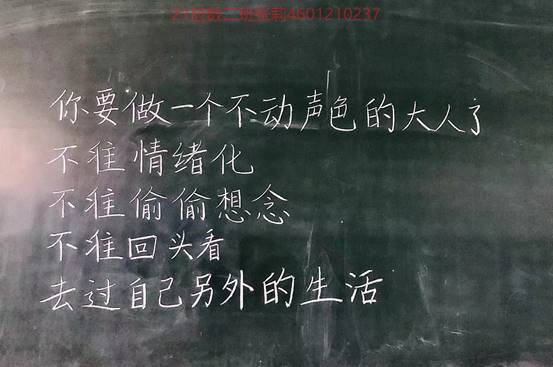 21长数二班张莉4601210237
你要做一个不动声色的大人了
不准情绪化
不准偷偷想念
不准回头看
去过自己另外的生活